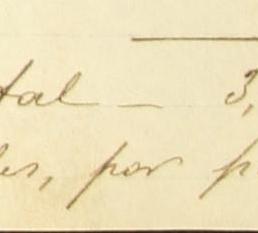 tal — 3,
les, por p